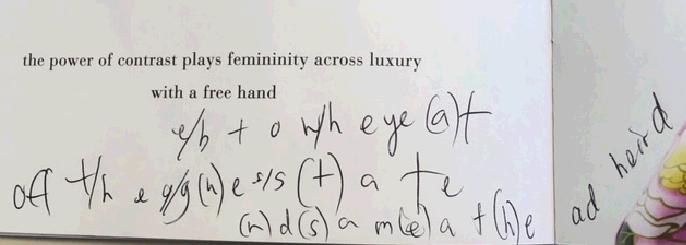 the power of contrast plays femininity across luxury
with a free hand
e/b + o w/h eye (a)t
off t/h e g/g(h)e s/s (t) a te
(n)d(s) a m(e)a t(h)e
ad heird